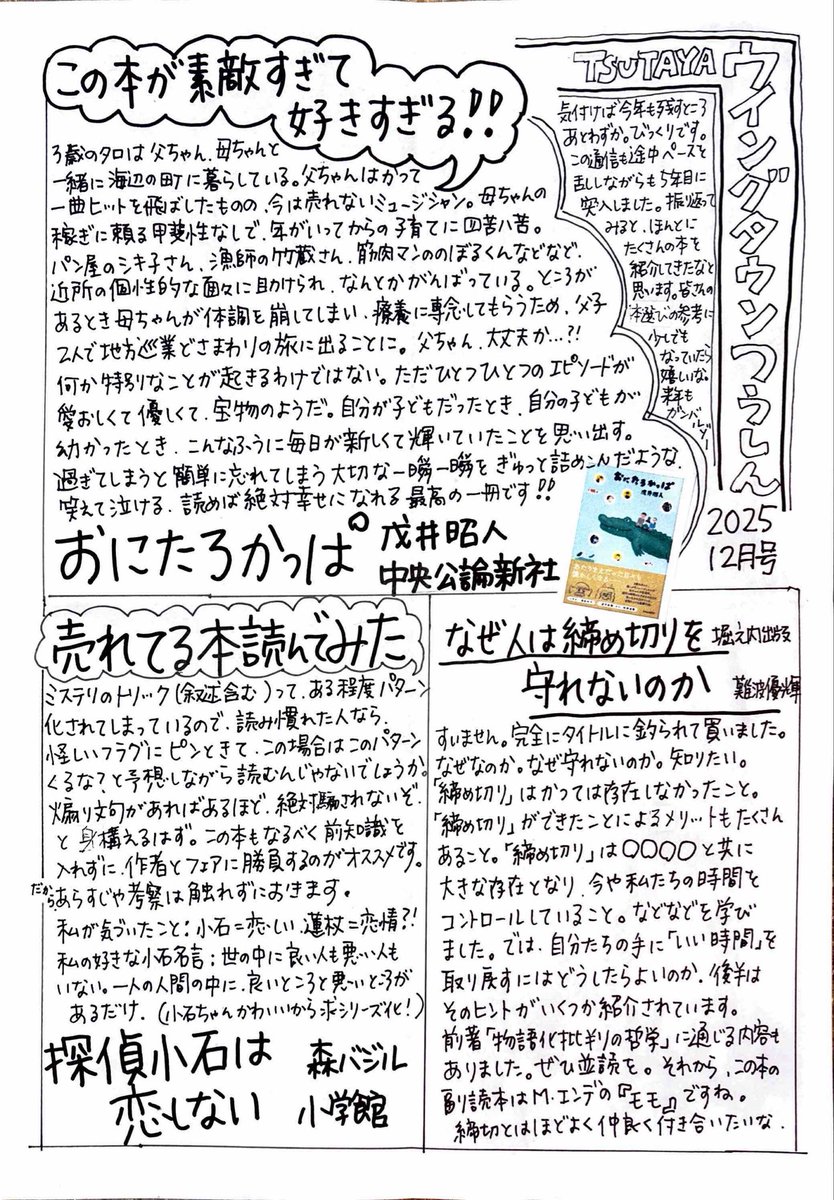 TSUTAYA
ウイングタウンつうしん
2025
12月号
気付けば今年も残すところ
あとわずか。びっくりです。
この通信も途中ペースを
乱しながらも5年目に
突入しました。振り返って
みると、ほんとに
たくさんの本を
紹介してきたなと
思います。皆さんの
本選びの参考に
少しでも
なっていたら
嬉しいな。
来年も
ガンバルゾー
この本が素敵すぎて
好きすぎる!!
3歳のタロは父ちゃん、母ちゃんと
一緒に海辺の町に暮らしている。父ちゃんはかつて
一曲ヒットを飛ばしたものの、今は売れないミュージシャン。母ちゃんの
稼ぎに頼る甲斐性なしで、年がいってからの子育てに四苦八苦。
パン屋のシキ子さん、漁師の竹蔵さん、筋肉マンののぼるくんなどなど、
近所の個性的な面々に助けられ、なんとかがんばっている。ところが
あるとき母ちゃんが体調を崩してしまい、療養に専念してもらうため、父子
2人で地方巡業どさまわりの旅に出ることに。父ちゃん、大丈夫か…?!
何か特別なことが起きるわけではない。ただひとつひとつのエピソードが
愛おしくて優しくて、宝物のようだ。自分が子どもだったとき、自分の子どもが
幼かったとき、こんなふうに毎日が新しくて輝いていたことを思い出す。
過ぎてしまうと簡単に忘れてしまう大切な一瞬一瞬をぎゅっと詰めこんだような、
笑えて泣ける、読めば絶対幸せになれる最高の一冊です!!
おにたろかっぱ
戌井昭人
中央公論新社
おにたろかっぱ
戌井昭人
売れてる本読んでみた
ミステリのトリック(叙述含む)って、ある程度パターン
化されてしまっているので、読み慣れた人なら、
怪しいフラグにピンときて、この場合はこのパターン
くるな?と予想しながら読むんじゃないでしょうか。
煽り文句があればあるほど、絶対騙されないぞ、
と身構えるはず。この本もなるべく前知識を
入れずに、作者とフェアに勝負するのがオススメです。
だからあらすじや考察は触れずにおきます。
私が気づいたこと:小石=恋しい、蓮杖=恋情?!
私の好きな小石名言:世の中に良い人も悪い人も
いない。一人の人間の中に、良いところと悪いところが
あるだけ。(小石ちゃんかわいいから求シリーズ化!)
探偵小石は
恋しない
森バジル
小学館
なぜ人は締め切りを
守れないのか
堀之内出版
難波優輝
すいません。完全にタイトルに釣られて買いました。
なぜなのか。なぜ守れないのか。知りたい。
「締め切り」はかつては存在しなかったこと。
「締め切り」ができたことによるメリットもたくさん
あること。「締め切り」は○○○○と共に
大きな存在となり、今や私たちの時間を
コントロールしていること。などなどを学び
ました。では、自分たちの手に「いい時間」を
取り戻すにはどうしたらよいのか、後半は
そのヒントがいくつか紹介されています。
前著「物語化批判の哲学」に通じる内容も
ありました。ぜひ並読を。それから、この本の
副読本はM・エンデの『モモ』ですね。
締切とはほどよく仲良く付き合いたいな。